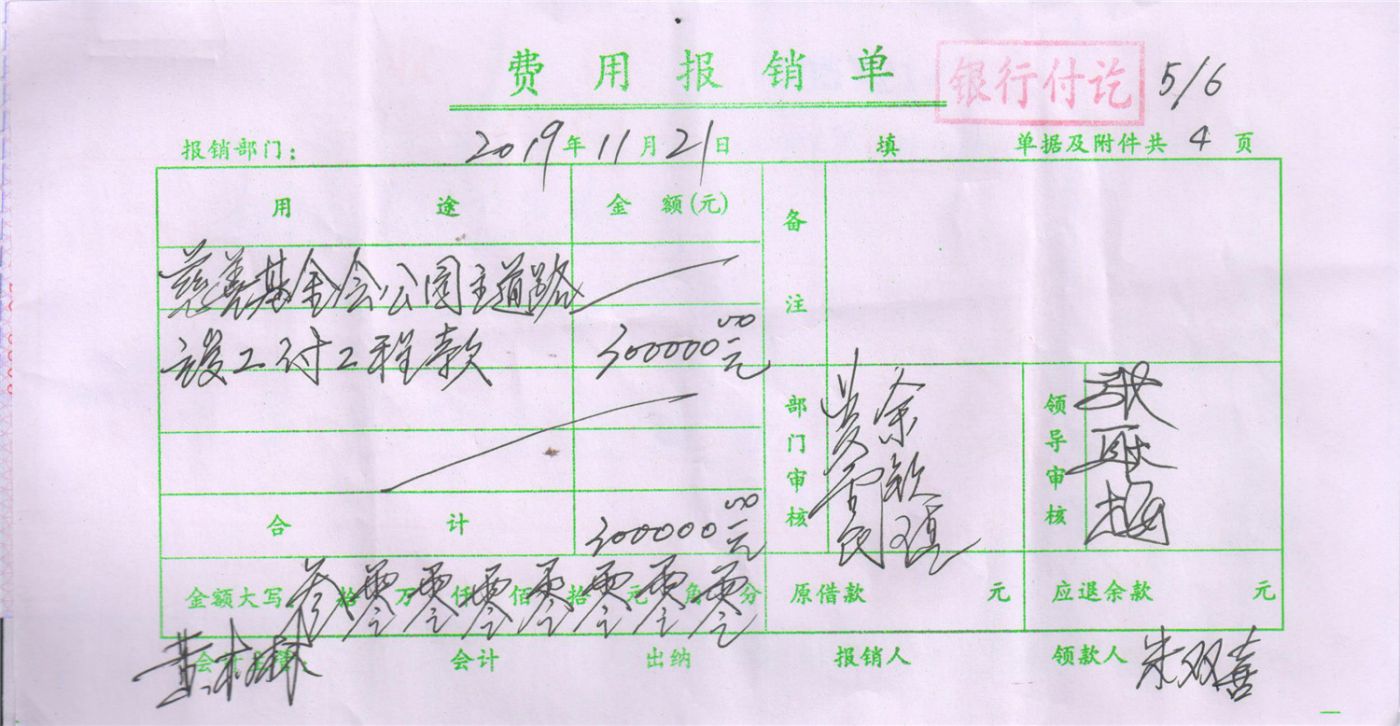 费用报销单
银行付讫
5/6
报销部门： 2019年11月21日 填 单据及附件共 4 页
用途 金额(元) 备注
慈善基金会公园主道路
竣工付工程款 300000.00元
部门审核 领导审核
合计 300000.00元
金额大写 叁拾零万零仟零佰零拾零元零角零分 原借款 元 应退余款 元
会计 出纳 报销人 领款人 朱双喜